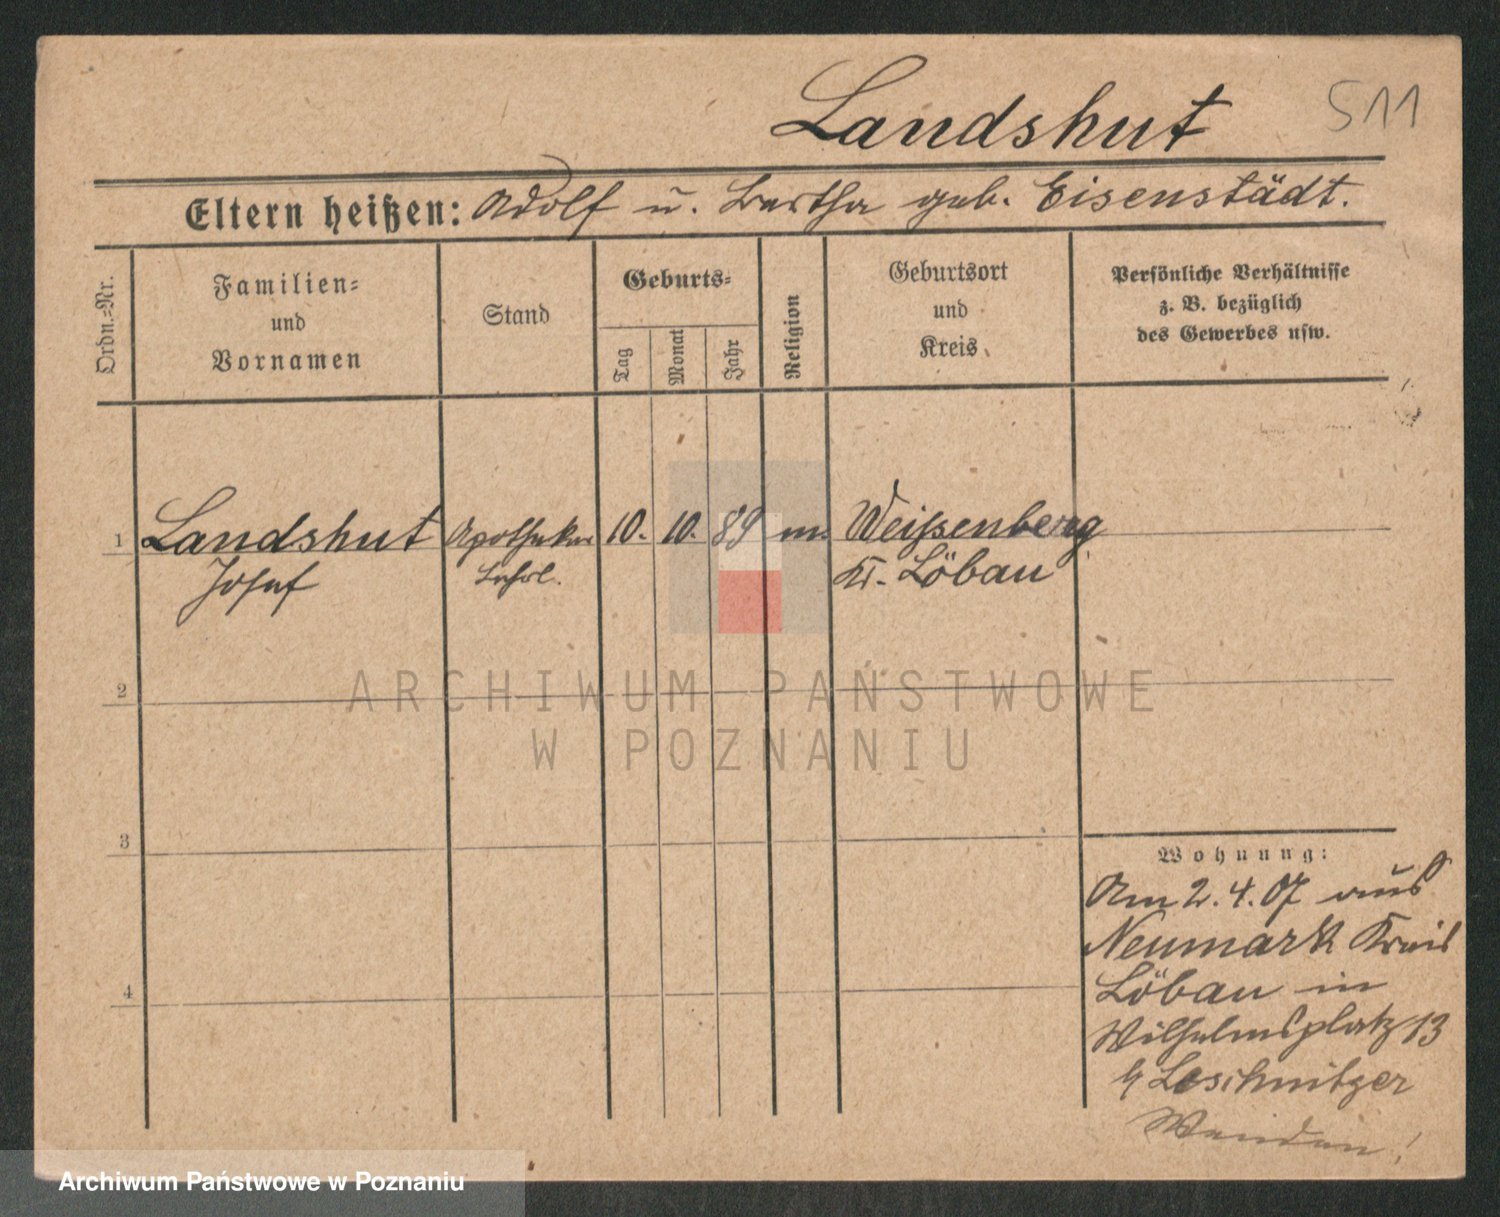 Landshut
511
Eltern heißen: Adolf u. Bertha geb. Eisenstädt.
Ordn.=Nr.
Familien=
und
Vornamen
Stand
Geburts=
Tag
Monat
Jahr
Religion
Geburtsort
und
Kreis
Persönliche Verhältnisse
z. B. bezüglich
des Gewerbes usw.
1
Landshut
Josef
Apotheker
Lehrl.
10.
10.
89
m.
Weißenberg
Kr. Löbau
2
3
4
Wohnung:
Am 2.4.07 aus
Neumark Kreis
Löbau in
Wilhelmsplatz 13
Leschnitzer
Wenden!
ARCHIWUM PAŃSTWOWE
W POZNANIU
Archiwum Państwowe w Poznaniu